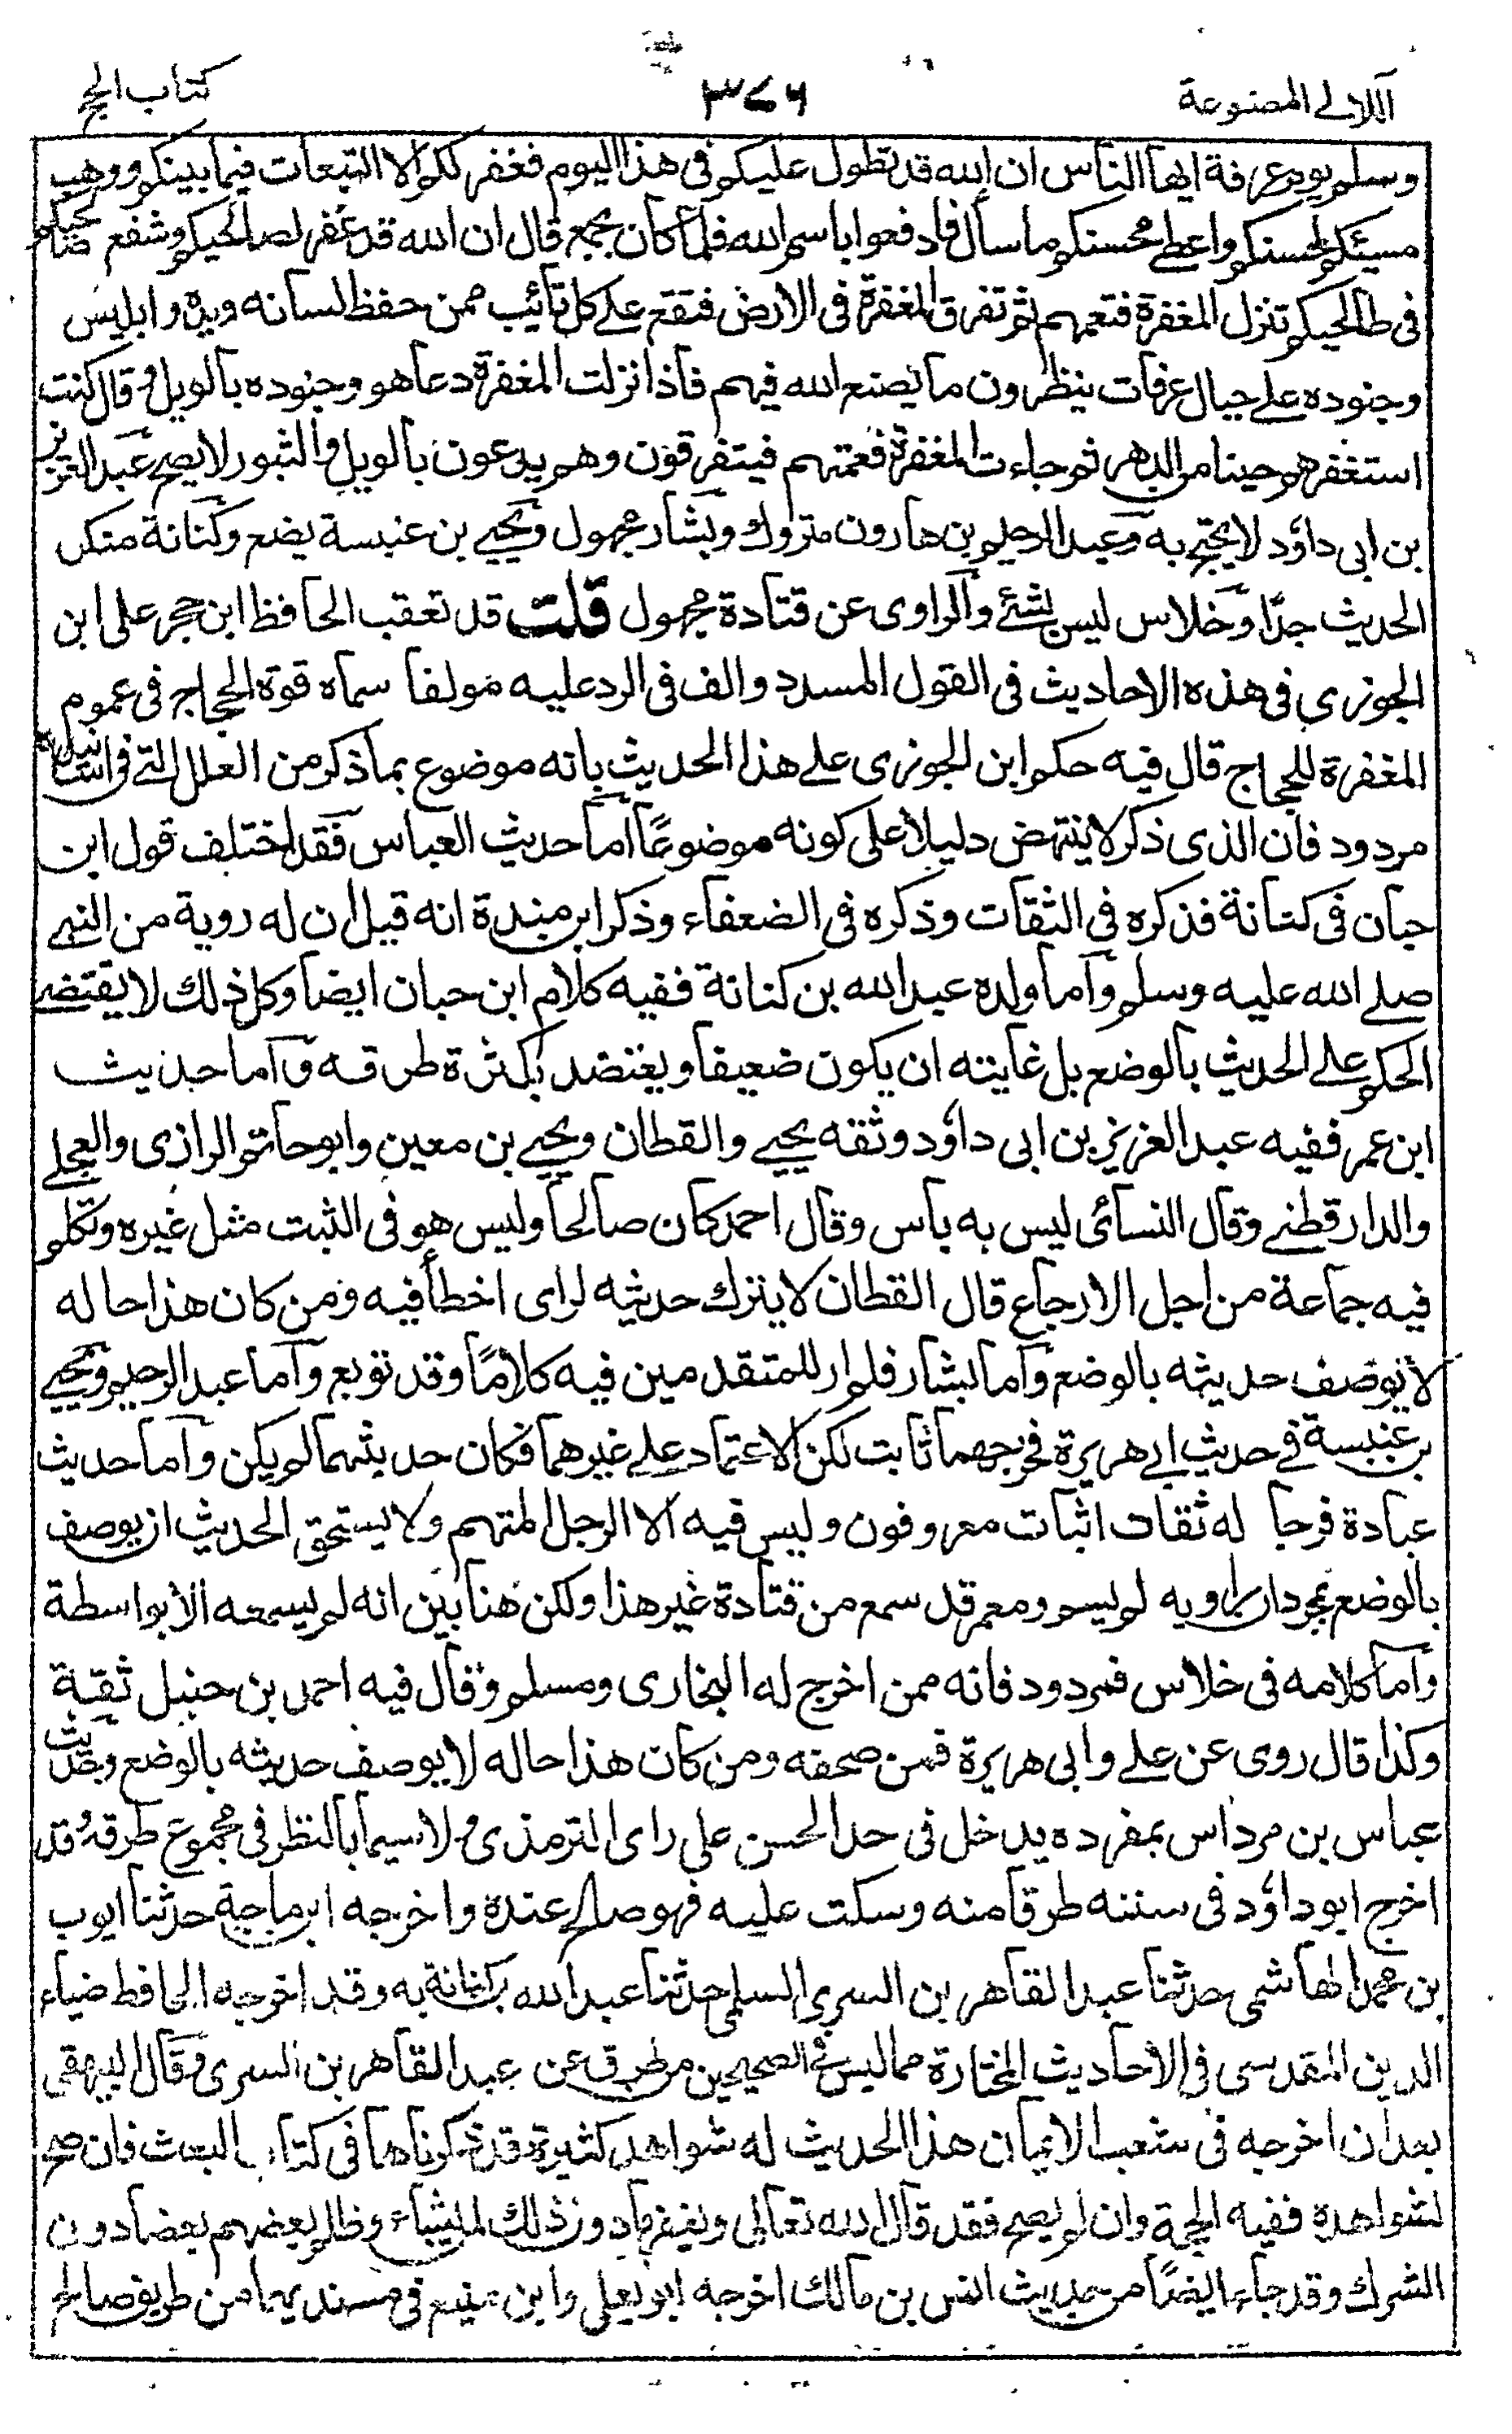 اللآلي المصنوعة
٣٧٦
كتاب الحج
وسلم يوم عرفة ايها الناس ان الله قد تطول عليكم في هذا اليوم فغفر لكم الا التبعات فيما بينكم ووهب
مسيئكم لمحسنكم واعطى محسنكم ما سأل فادفعوا باسم الله فلما كان بجمع قال ان الله قد غفر لصالحيكم وشفع صالحيكم
في طالحيكم تنزل المغفرة فتعمهم ثم تفرق المغفرة في الارض فتقع على كل تائب ممن حفظ لسانه ويده وابليس
وجنوده على جبال عرفات ينظرون ما يصنع الله فيهم فاذا نزلت المغفرة دعا هو وجنوده بالويل وقال كنت
استغفرهم حينا من الدهر ثم جاءت المغفرة فعمتهم فيتفرقون وهم يدعون بالويل والثبور لا يصح عبد العزيز
بن ابى داؤد لا يحتج به وعبد الرحيم بن هارون متروك وبشار مجهول ويحيى بن عنبسة يضع وكنانة منكر
الحديث جدًا وخلاس ليس بشئ والراوى عن قتادة مجهول قلت قد تعقب الحافظ ابن حجر على ابن
الجوزي في هذه الاحاديث في القول المسدد والف في الرد عليه مولفا سماه قوة الحجاج في عموم
المغفرة للحجاج قال فيه حكم ابن الجوزى على هذا الحديث بانه موضوع بما ذكر من العلل التي في اسانيده
مردود فان الذى ذكر لا ينتهض دليلا على كونه موضوعًا اما حديث العباس فقد اختلف قول ابن
حبان في كنانة فذكره في الثقات وذكره في الضعفاء وذكر ابن مندة انه قيل ان له روية من النبي
صلى الله عليه وسلم وأما ولده عبد الله بن كنانة ففيه كلام ابن حبان ايضا وكل ذلك لا يقتضي
الحكم على الحديث بالوضع بل غايته ان يكون ضعيفا ويعتضد بكثرة طرقه وأما حديث
ابن عمر ففيه عبد العزيز بن ابى داؤد وثقه يحيى والقطان ويحيى بن معين وابو حاتم الرازى والعجلي
والدارقطني وقال النسائى ليس به باس وقال احمد كان صالحا وليس هو في الثبت مثل غيره وتكلم
فيه جماعة من اجل الارجاع قال القطان لا يترك حديثه لراى اخطأ فيه ومن كان هذا حاله
لا يوصف حديثه بالوضع وأما بشار فلم ار للمتقدمين فيه كلامًا وقد توبع وأما عبد الرحيم ويحيى
بن عنبسة في حديث ابي هريرة فجرحهما ثابت لكن الاعتماد على غيرهما فكان حديثهما لم يكن وأما حديث
عبادة فرجا له ثقات اثبات معروفون وليس فيه الا الرجل المتهم ولا يستحق الحديث ان يوصف
بالوضع بمجرد ان راويه لم يسم ومعمر قد سمع من قتادة غير هذا ولكن هنا بين انه لم يسمعه الا بواسطة
وأما كلامه في خلاس فمردود فانه ممن اخرج له البخارى ومسلم وقال فيه احمد بن حنبل ثقة ثقة
وكذا قال روى عن على وابى هريرة فمن صحفه ومن كان هذا حاله لا يوصف حديثه بالوضع وحديث
عباس بن مرداس بمفرده يدخل في حد الحسن على راى الترمذى ولا سيما بالنظر في مجموع طرقه وقد
اخرج ابو داؤد في سننه طرقا منه وسكت عليه فهو صالح عنده واخرجه ابن ماجة حدثنا ايوب
بن محمد الهاشمي حدثنا عبد القاهر بن السرى السلمى حدثنا عبد الله بن كنانة به وقد اخرجه الحافظ ضياء
الدين المقدسى في الاحاديث المختارة مما ليس في الصحيحين من طرق عن عبد القاهر بن السرى وقال البيهقى
بعد ان اخرجه في شعب الايمان هذا الحديث له شواهد كثيرة قد ذكرناها في كتاب البعث فان صح
لشواهده ففيه الحجة وان لم يصح فقد قال الله تعالى ويغفر ما دون ذلك لمن يشاء وظلم بعضهم بعضا دون
الشرك وقد جاء ايضًا من حديث انس بن مالك اخرجه ابو يعلى وابن منيع في مسنديهما من طريق صالح